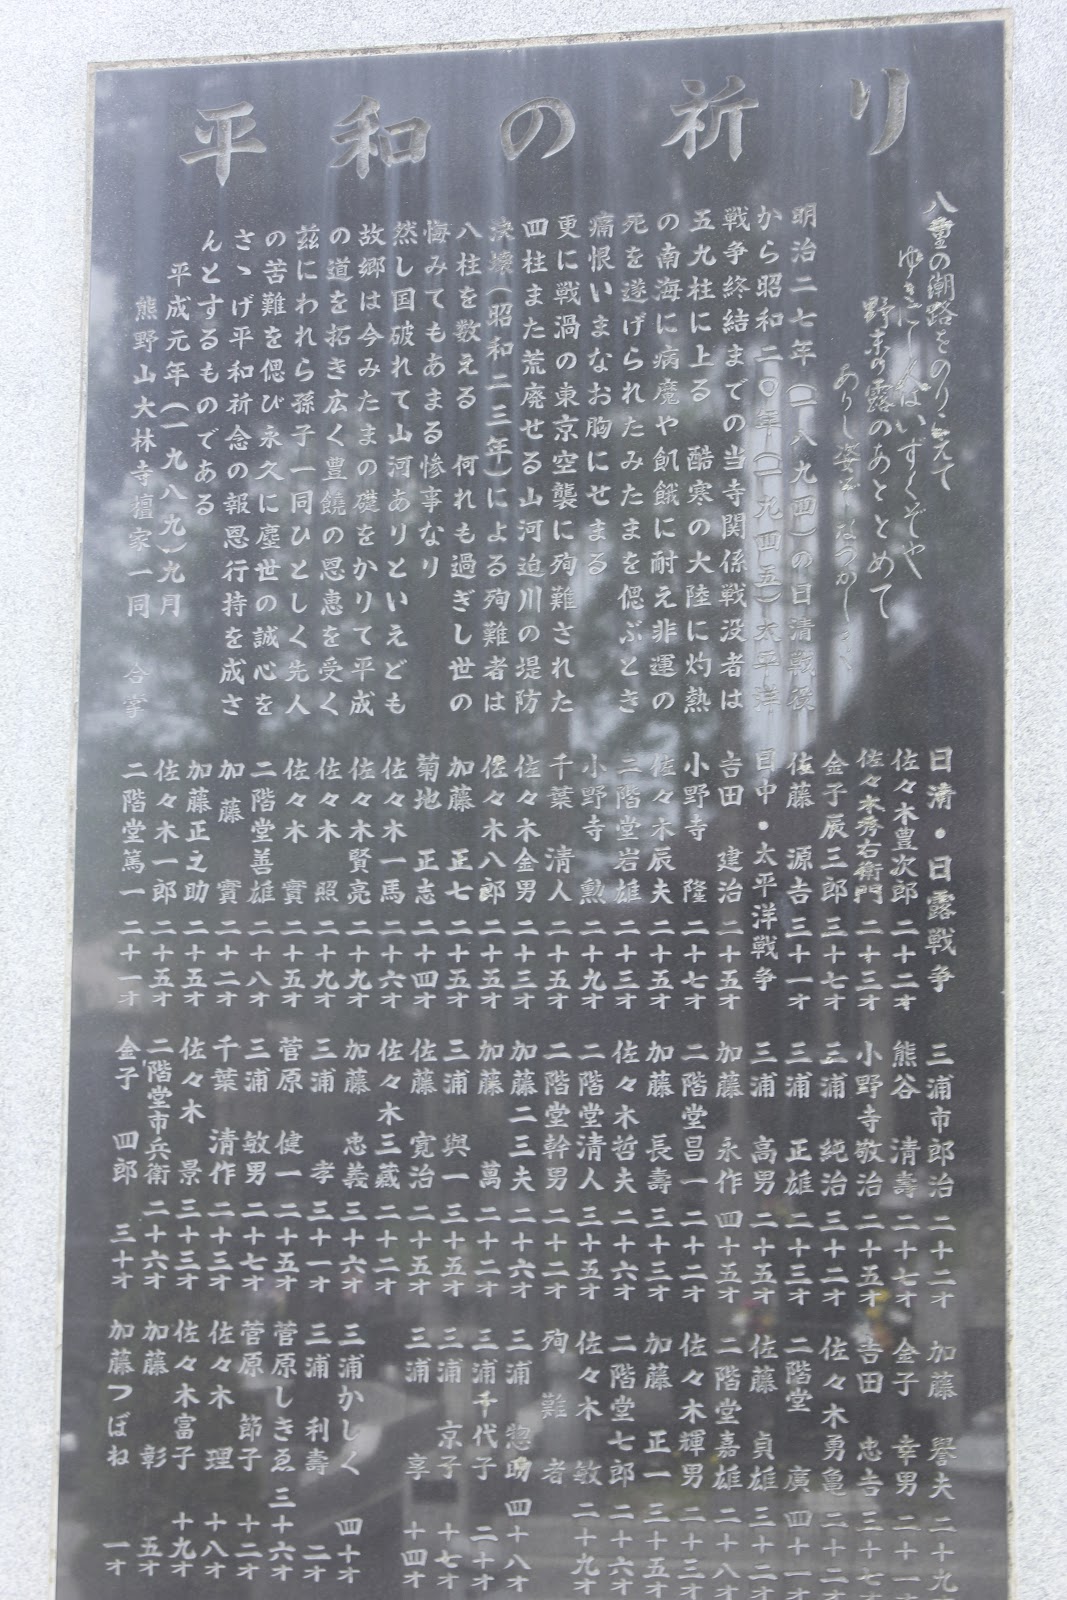 平和の祈り
八重の潮路をのりこえて
ゆきにし人はいずくぞや
野末の露のあととめて
ありし姿ぞなつかしき
明治二七年(一八九四)の日清戦役
から昭和二〇年(一九四五)太平洋
戦争終結までの当寺関係戦没者は
五九柱に上る 酷寒の大陸に灼熱
の南海に病魔や飢餓に耐え非運の
死を遂げられたみたまを偲ぶとき
痛恨いまなお胸にせまる
更に戦渦の東京空襲に殉難された
四柱また荒廃せる山河迫川の堤防
決壊(昭和二三年)による殉難者は
八柱を数える 何れも過ぎし世の
悔みてもあまる惨事なり
然し国破れて山河ありといえども
故郷は今みたまの礎をかりて平成
の道を拓き広く豊饒の恩恵を受く
茲にわれら孫子一同ひとしく先人
の苦難を偲び永久に塵世の誠心を
さゝげ平和祈念の報恩行持を成さ
んとするものである
平成元年(一九八九)九月
熊野山大林寺壇家一同 合掌
日清・日露戦争
佐々木豊次郎 二十二才
佐々木秀右衛門 二十三才
金子辰三郎 三十七才
佐藤源吉 三十一才
日中・太平洋戦争
吉田建治 二十五才
小野寺隆 二十七才
佐々木辰夫 二十五才
二階堂岩雄 二十三才
小野寺勲 二十九才
千葉清人 二十五才
佐々木金男 二十三才
佐々木八郎 二十五才
加藤正七 二十五才
菊地正志 二十四才
佐々木一馬 二十六才
佐々木賢亮 二十九才
佐々木照 二十九才
佐々木實 二十五才
二階堂善雄 二十八才
加藤實 二十二才
加藤正之助 二十五才
佐々木一郎 二十五才
二階堂篤一 二十一才
三浦市郎治 二十二才
熊谷清壽 二十七才
小野寺敬治 二十五才
三浦純治 三十二才
三浦正雄 二十三才
三浦高男 二十五才
加藤永作 四十五才
二階堂昌一 二十二才
加藤長壽 三十三才
佐々木哲夫 二十六才
二階堂清人 三十五才
二階堂幹男 二十二才
加藤二三夫 二十六才
加藤萬 二十二才
三浦與一 三十五才
佐藤寛治 二十五才
佐々木三蔵 二十二才
加藤忠義 三十六才
三浦孝 三十一才
菅原健一 二十五才
三浦敏男 二十七才
千葉清作 二十三才
佐々木景 三十三才
二階堂市兵衛 二十六才
金子四郎 三十才
加藤譽夫 二十九
金子幸男 二十一才
吉田忠吉 三十七才
佐々木勇亀 二十二才
二階堂廣 四十一才
佐藤貞雄 三十二才
二階堂嘉雄 二十八才
佐々木輝男 二十三才
加藤正一 三十五才
二階堂七郎 二十六才
佐々木敏 二十九才
殉難者
三浦惣助 四十八才
三浦千代子 二十才
三浦京子 十七才
三浦享 十四才
三浦かしく 四十才
三浦利壽 二才
菅原しきゑ 三十六才
菅原節子 十二才
佐々木理 十八才
佐々木富子 十九才
加藤彰 五才
加藤つばね 一才